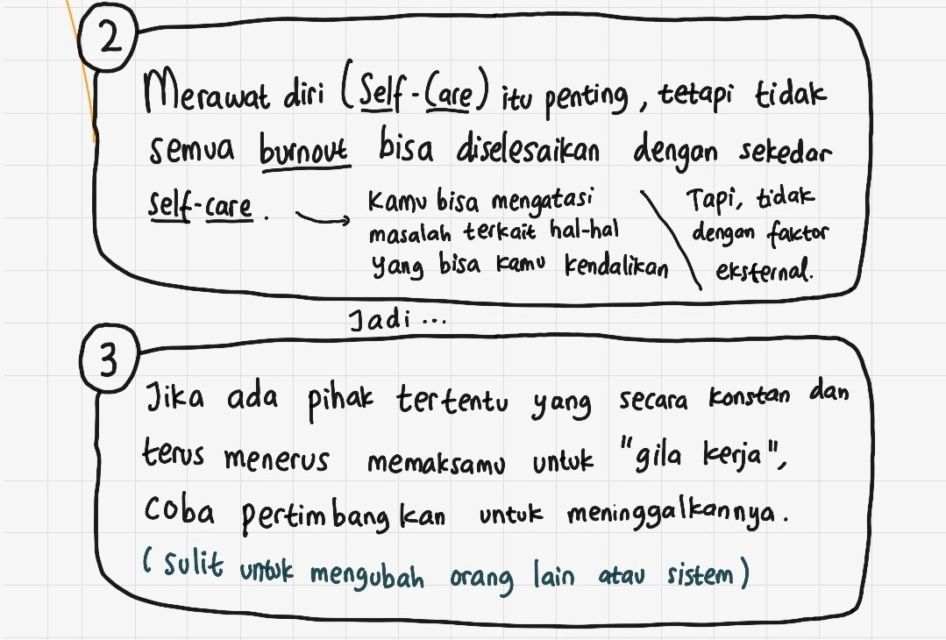 2
Merawat diri (Self-Care) itu penting, tetapi tidak
semua burnout bisa diselesaikan dengan sekedar
self-care.
Kamu bisa mengatasi
masalah terkait hal-hal
yang bisa kamu kendalikan
Tapi, tidak
dengan faktor
eksternal.
Jadi ...
3
Jika ada pihak tertentu yang secara konstan dan
terus menerus memaksamu untuk "gila kerja",
coba pertimbangkan untuk meninggalkannya.
(Sulit untuk mengubah orang lain atau sistem)